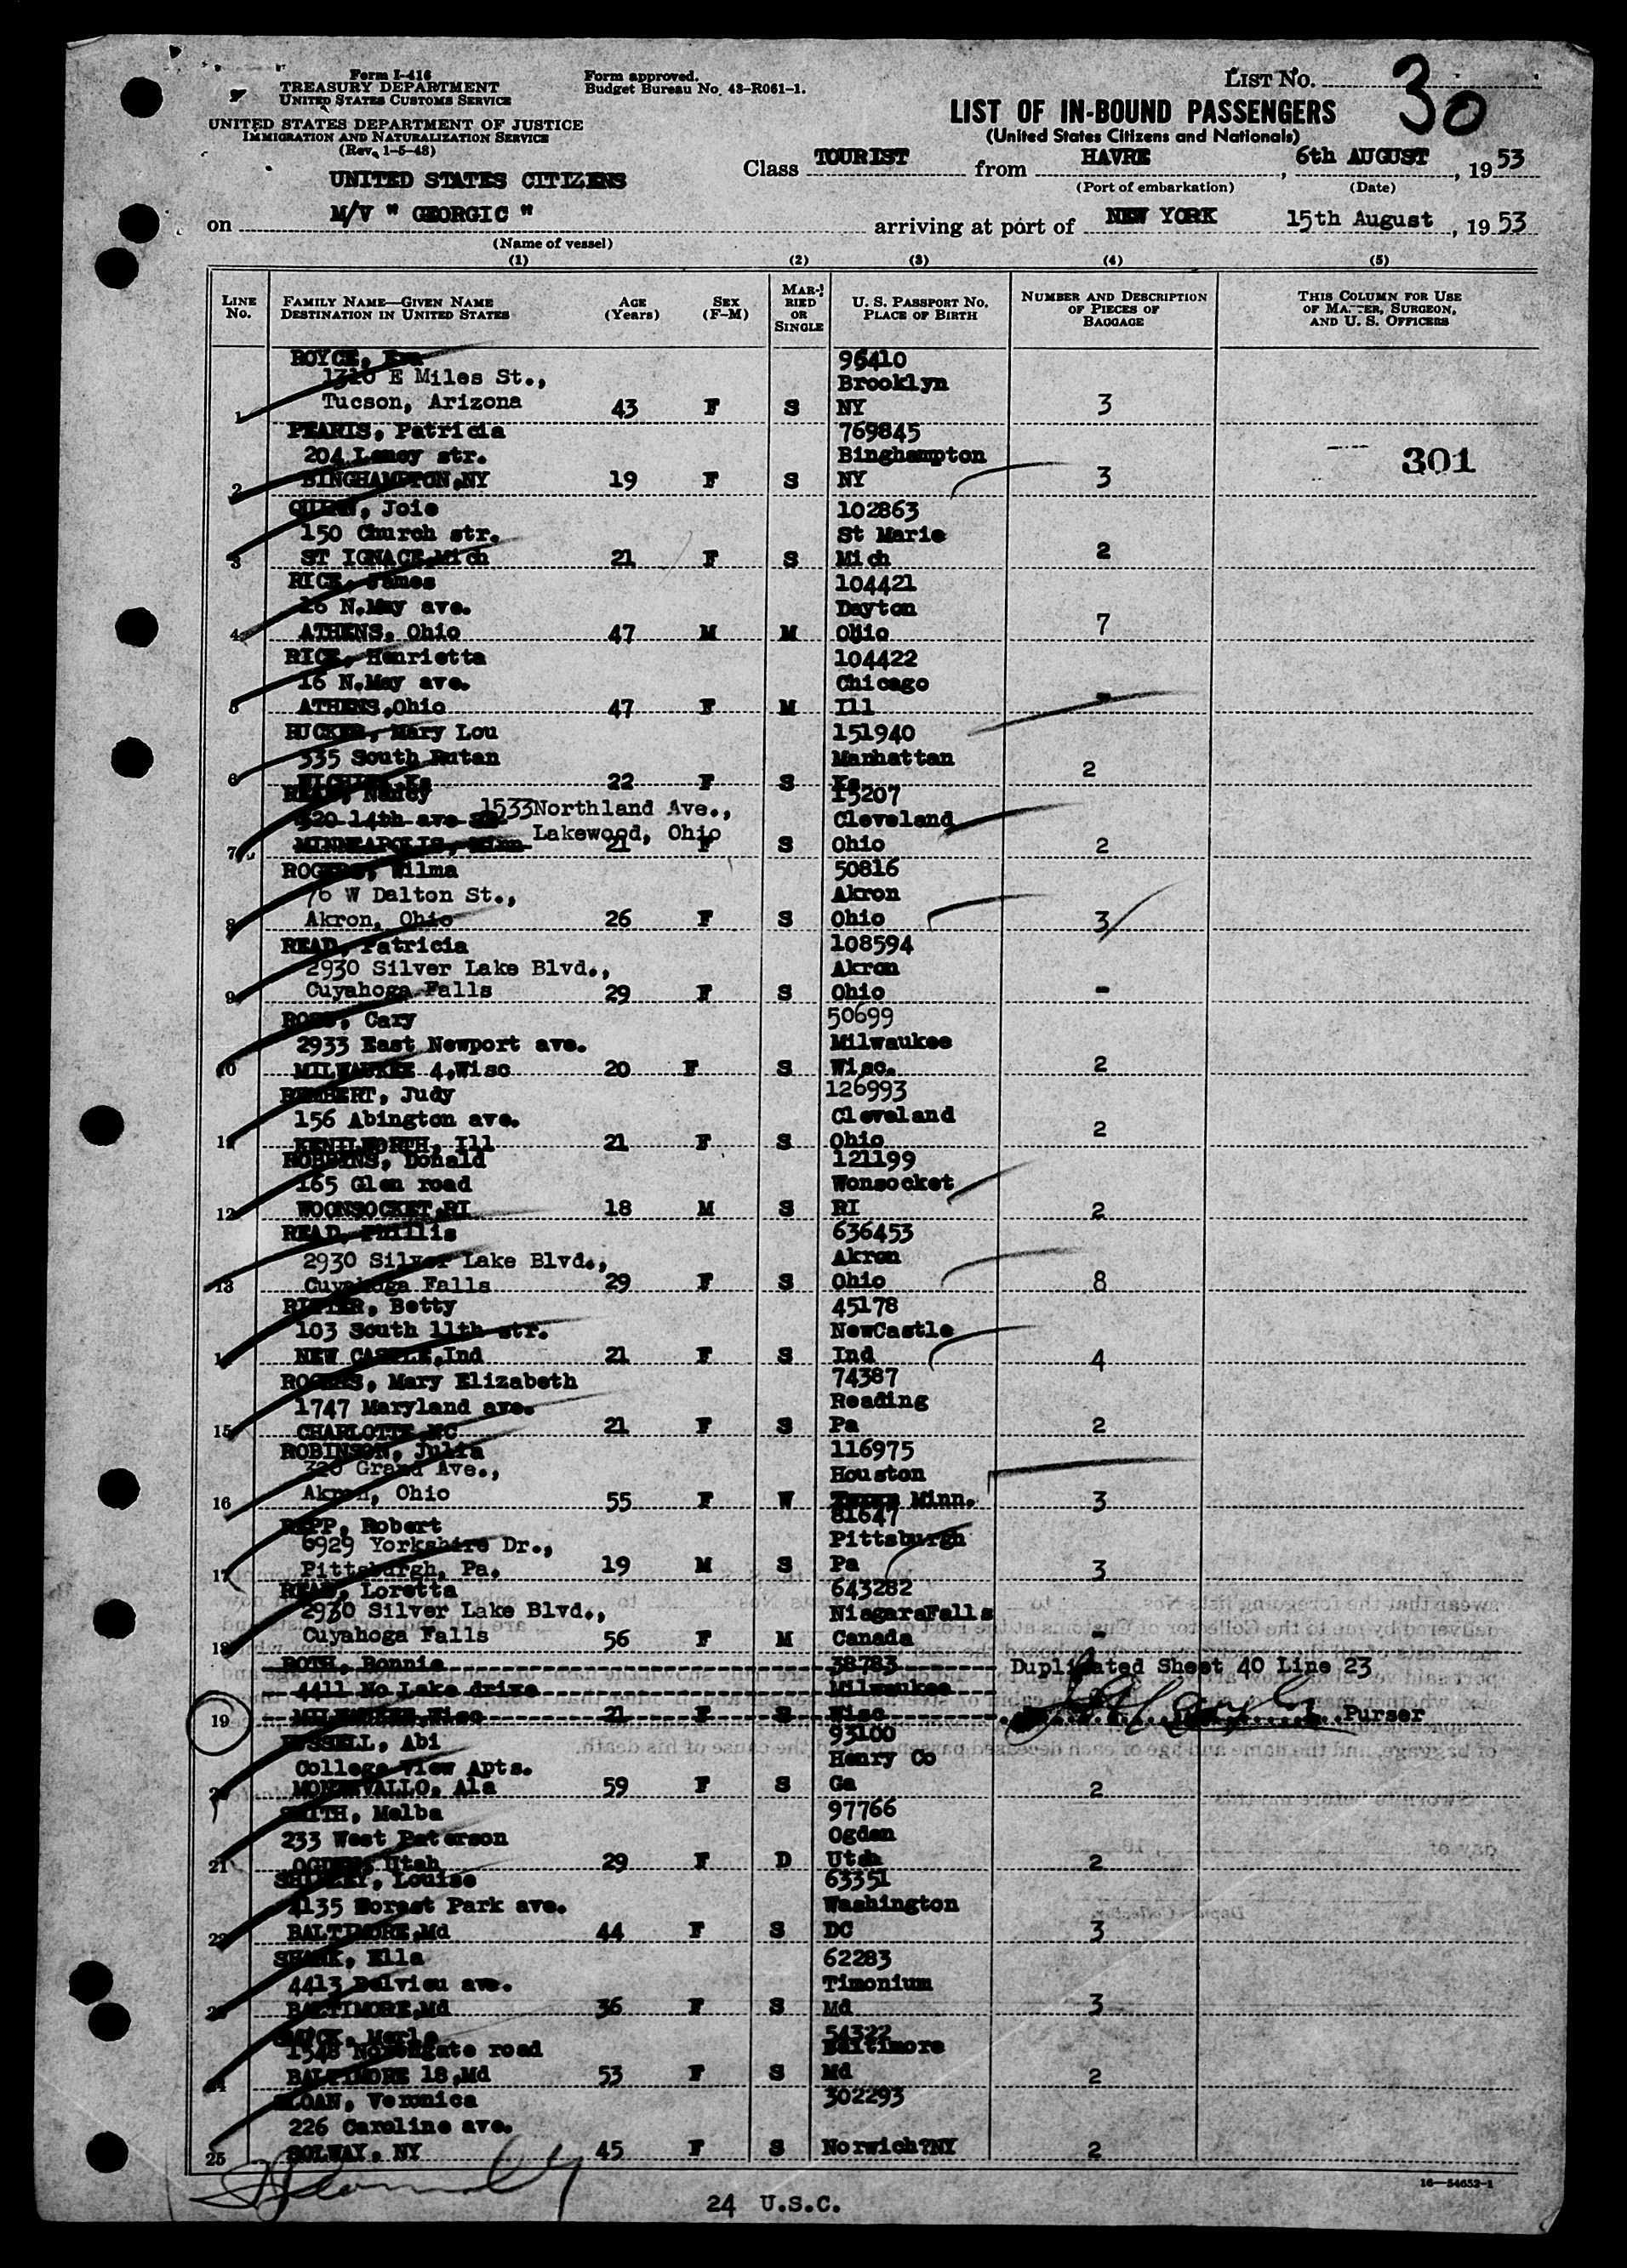 Form I-416
TREASURY DEPARTMENT
UNITED STATES CUSTOMS SERVICE
UNITED STATES DEPARTMENT OF JUSTICE
IMMIGRATION AND NATURALIZATION SERVICE
(Rev. 1-5-48)
Form approved.
Budget Bureau No. 43-R061-1.
LIST NO. 30
LIST OF IN-BOUND PASSENGERS
(United States Citizens and Nationals)
UNITED STATES CITIZENS
Class TOURIST from HAVRE, 6th AUGUST, 1953
(Port of embarkation) (Date)
on M/V " GEORGIC " arriving at port of NEW YORK 15th August, 1953
(Name of vessel)
(1) (2) (3) (4) (5)
LINE NO. FAMILY NAME—GIVEN NAME DESTINATION IN UNITED STATES AGE (Years) SEX (F–M) MARRIED OR SINGLE U. S. PASSPORT NO. PLACE OF BIRTH NUMBER AND DESCRIPTION OF PIECES OF BAGGAGE THIS COLUMN FOR USE OF MASTER, SURGEON, AND U. S. OFFICERS
ROYCE, Eva 96410
1310 E Miles St., Brooklyn
1 Tucson, Arizona 43 F S NY 3
PEARIS, Patricia 769845
204 str. Binghampton 301
2 BINGHAMPTON,NY 19 F S NY 3
QUINN, Joie 102863
150 Church str. St Marie
3 ST IGNACE,Mich 21 F S Mich 2
RICE, James 104421
16 N.May ave. Dayton
4 ATHENS, Ohio 47 M M Ohio 7
RICE, Henrietta 104422
16 N.May ave. Chicago
5 ATHENS,Ohio 47 F M Ill -
RUCKER, Mary Lou 151940
335 South Rutan Manhattan
6 WICHITA,Ka 22 F S Ka 2
Nancy 15207
520 14th ave 1533Northland Ave., Cleveland
7 MINNEAPOLIS, Minn Lakewood, Ohio 21 F S Ohio 2
ROGERS, Wilma 50816
76 W Dalton St., Akron
8 Akron, Ohio 26 F S Ohio 3
READ, Patricia 108594
2930 Silver Lake Blvd., Akron
9 Cuyahoga Falls 29 F S Ohio -
ROSS, Cary 50699
2933 East Newport ave. Milwaukee
10 MILWAUKEE 4,Wisc 20 F S Wisc. 2
Judy 126993
156 Abington ave. Cleveland
11 KENILWORTH, Ill 21 F S Ohio 2
ROBBINS, Donald 121199
165 Glen road Wonsocket
12 WOONSOCKET,RI 18 M S RI 2
READ, Phillis 636453
2930 Silver Lake Blvd., Akron
13 Cuyahoga Falls 29 F S Ohio 8
RITTER, Betty 45178
103 South 11th str. NewCastle
1 NEW CASTLE,Ind 21 F S Ind 4
ROGERS, Mary Elizabeth 74387
1747 Maryland ave. Reading
15 CHARLOTTE,NC 21 F S Pa 2
ROBINSON, Julia 116975
320 Grand Ave., Houston
16 Akron, Ohio 55 F W Texas Minn. 3
RAPP, Robert 81647
6929 Yorkshire Dr., Pittsburgh
17 Pittsburgh, Pa. 19 M S Pa 3
READ, Loretta 643282
2930 Silver Lake Blvd., NiagaraFalls
18 Cuyahoga Falls 56 F M Canada -
ROTH, Bonnie 38783 Duplicated Sheet 40 Line 23
4411 No Lake drive Milwaukee
19 MILWAUKEE,Wisc 21 F S Wisc Purser
RUSSELL, Abi 93100
College View Apts. Henry Co
2 MONTEVALLO, Ala 59 F S Ga 2
SMITH, Melba 97766
233 West Paterson Ogden
21 OGDEN, Utah 29 F D Utah 2
SHIPLEY, Louise 63351
4135 Forest Park ave. Washington
22 BALTIMORE,Md 44 F S DC 3
SHANK, Ella 62283
4413 Belvieu ave. Timonium
23 BALTIMORE,Md 36 F S Md 3
Merle 54322
1548 Northgate road Baltimore
24 BALTIMORE 18,Md 53 F S Md 2
SLOAN, Veronica 302293
226 Caroline ave.
25 SOLWAY, NY 45 F S Norwich?NY 2
16—54652-1
24 U.S.C.